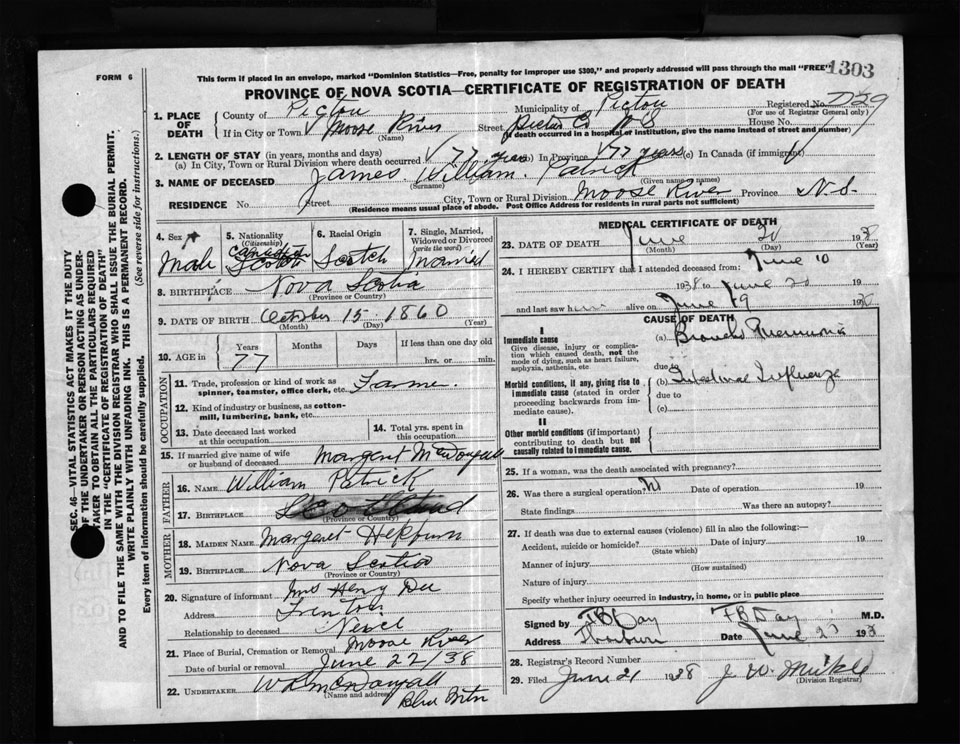 FORM 6
This form if placed in an envelope, marked "Dominion Statistics—Free, penalty for improper use $300," and properly addressed will pass through the mail "FREE"
1303
PROVINCE OF NOVA SCOTIA—CERTIFICATE OF REGISTRATION OF DEATH
SEC. 46—VITAL STATISTICS ACT MAKES IT THE DUTY
OF THE UNDERTAKER OR PERSON ACTING AS UNDER-
TAKER TO OBTAIN ALL THE PARTICULARS REQUIRED
IN THE "CERTIFICATE OF REGISTRATION OF DEATH"
AND TO FILE THE SAME WITH THE DIVISION REGISTRAR WHO SHALL ISSUE THE BURIAL PERMIT.
WRITE PLAINLY WITH UNFADING INK. THIS IS A PERMANENT RECORD.
Every item of information should be carefully supplied. (See reverse side for instructions.)
1. PLACE OF DEATH
County of Pictou Municipality of Pictou Registered No.
(For use of Registrar General only)
If in City or Town Moose River Street Pictou Co N S House No.
(Name) (If death occurred in a hospital or institution, give the name instead of street and number)
2. LENGTH OF STAY (in years, months and days)
(a) In City, Town or Rural Division where death occurred 77 years (b) In Province 77 years (c) In Canada (if immigrant)
3. NAME OF DECEASED James William Patrick
(Surname) (Given name or names)
RESIDENCE No. Street City, Town or Rural Division Moose River Province N.S.
(Residence means usual place of abode. Post Office Address for residents in rural parts not sufficient)
4. Sex Male
5. Nationality (Citizenship) Canadian Scotch
6. Racial Origin Scotch
7. Single, Married, Widowed or Divorced (write the word) Married
8. BIRTHPLACE Nova Scotia
(Province or Country)
9. DATE OF BIRTH October 15 1860
(Month) (Day) (Year)
10. AGE in Years 77 Months Days If less than one day old hrs. or min.
OCCUPATION
11. Trade, profession or kind of work as spinner, teamster, office clerk, etc. Farmer.
12. Kind of industry or business, as cotton-mill, lumbering, bank, etc.
13. Date deceased last worked at this occupation
14. Total yrs. spent in this occupation
15. If married give name of wife or husband of deceased Margaret McDougall
FATHER
16. NAME William Patrick
17. BIRTHPLACE Scotland
(Province or Country)
MOTHER
18. MAIDEN NAME Margaret Hepburn
19. BIRTHPLACE Nova Scotia
(Province or Country)
20. Signature of informant Mrs Henry Dee
Address Trenton
Relationship to deceased
21. Place of Burial, Cremation or Removal Moose River
Date of burial or removal June 22/38
22. UNDERTAKER W R McDougall
(Name and address) Blue Mtn
MEDICAL CERTIFICATE OF DEATH
23. DATE OF DEATH June 20 1938
(Month) (Day) (Year)
24. I HEREBY CERTIFY that I attended deceased from: June 10
1938 to June 20 193
and last saw him alive on June 19 193
CAUSE OF DEATH
I
Immediate cause
Give disease, injury or complication which caused death, not the mode of dying, such as heart failure, asphyxia, asthenia, etc
(a) Broncho Pneumonia
due to
Morbid conditions, if any, giving rise to immediate cause (stated in order proceeding backwards from immediate cause).
(b) Intestinal Influenza
due to
(c)
II
Other morbid conditions (if important) contributing to death but not causally related to immediate cause.
25. If a woman, was the death associated with pregnancy?
26. Was there a surgical operation No Date of operation 19
State findings Was there an autopsy?
27. If death was due to external causes (violence) fill in also the following:—
Accident, suicide or homicide? Date of injury 19
(State which)
Manner of injury
(How sustained)
Nature of injury
Specify whether injury occurred in industry, in home, or in public place
Signed by F B Day F B Day M.D.
Address Thorburn Date June 193
28. Registrar's Record Number
29. Filed June 21 1938 J. W.
(Division Registrar)